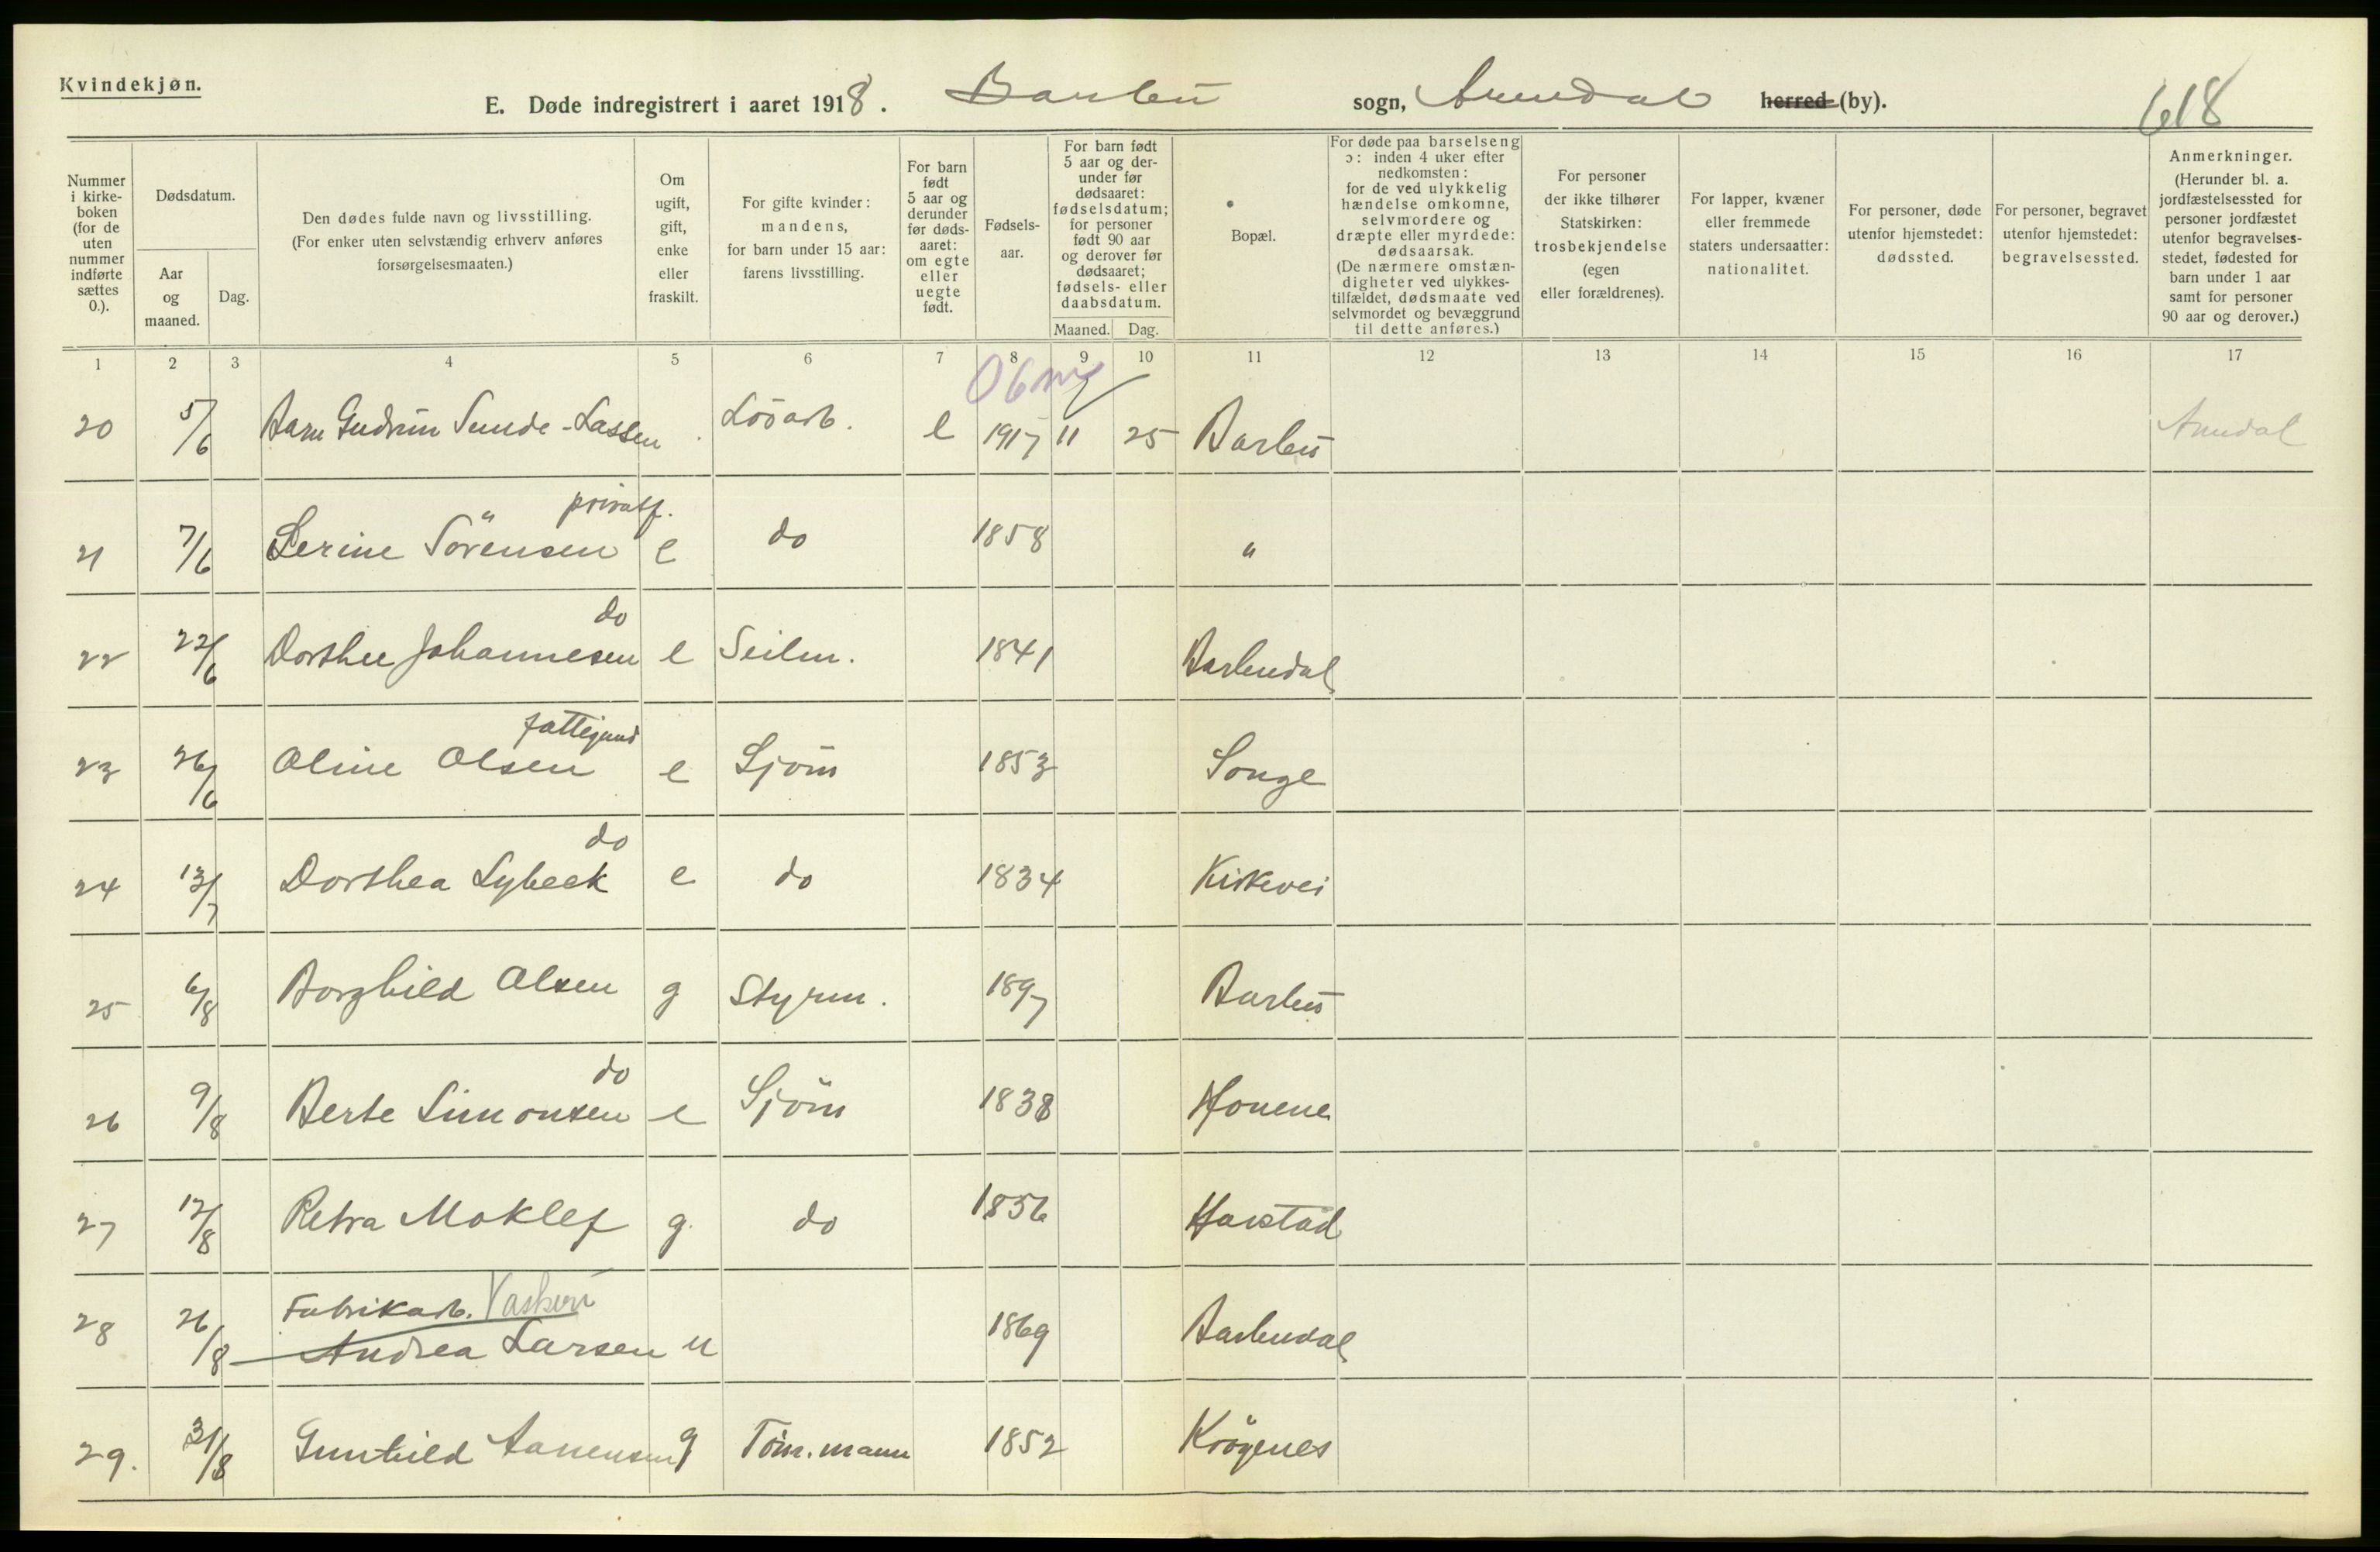 Kvindekjøn.
E. Døde indregistrert i aaret 1918. Barbu sogn, Arendal herred (by). 618
Nummer i kirkeboken (for de uten nummer indførte sættes 0.).
Dødsdatum.
Aar og maaned.
Dag.
Den dødes fulde navn og livsstilling.
(For enker uten selvstændig erhverv anføres forsørgelsesmaaten.)
Om ugift, gift, enke eller fraskilt.
For gifte kvinder: mandens, for barn under 15 aar: farens livsstilling.
For barn født 5 aar og derunder før dødsaaret: om egte eller uegte født.
Fødselsaar.
For barn født 5 aar og derunder før dødsaaret: fødselsdatum; for personer født 90 aar og derover før dødsaaret; fødsels- eller daabsdatum.
Maaned. Dag.
Bopæl.
For døde paa barselseng ɔ: inden 4 uker efter nedkomsten: for de ved ulykkelig hændelse omkomne, selvmordere og dræpte eller myrdede: dødsaarsak. (De nærmere omstændigheter ved ulykkestilfældet, dødsmaate ved selvmordet og bevæggrund til dette anføres.)
For personer der ikke tilhører Statskirken: trosbekjendelse (egen eller forældrenes).
For lapper, kvæner eller fremmede staters undersaatter: nationalitet.
For personer, døde utenfor hjemstedet: dødssted.
For personer, begravet utenfor hjemstedet: begravelsessted.
Anmerkninger. (Herunder bl. a. jordfæstelsessted for personer jordfæstet utenfor begravelsesstedet, fødested for barn under 1 aar samt for personer 90 aar og derover.)
1 2 3 4 5 6 7 8 9 10 11 12 13 14 15 16 17
20 5/6 Gudrun Sunde-Lassen Lösarb. e 1917 11 25 Barbu Arendal
privatf.
21 7/6 Serine Sörensen e do 1858 "
do
22 22/6 Dorthee Johannesen e Seilm. 1841 Barbudal
fattigund
23 26/6 Oline Olsen e Sjöm 1853 Songe
do
24 13/7 Dorthea Lybeck e do 1834 Kirkevei
25 6/8 Borghild Olsen g Styrm. 1897 Barbu
do
26 9/8 Berte Simonsen e Sjöm 1838
27 12/8 Petra Moklef g. do 1856 Harstad
Fabrikarb. Vaskeri
28 26/8 Andrea Larsen u 1869 Barbudal
29. 31/8 Gunhild Aanensen g Töm.mann 1852 Krögenes